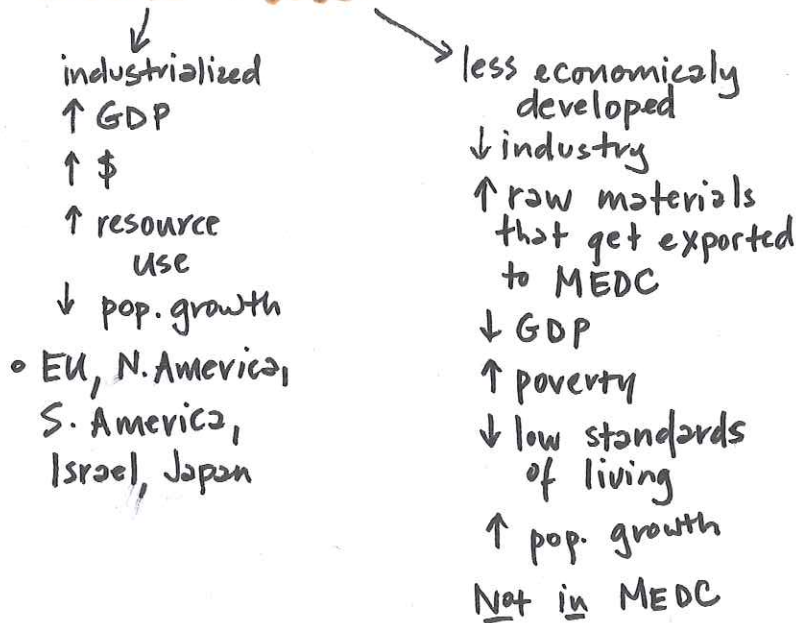 industrialized
↑ GDP
↑ $
↑ resource
use
↓ pop. growth
• EU, N. America,
S. America,
Israel, Japan
less economicaly
developed
↓ industry
↑ raw materials
that get exported
to MEDC
↓ GDP
↑ poverty
↓ low standards
of living
↑ pop. growth
Not in MEDC